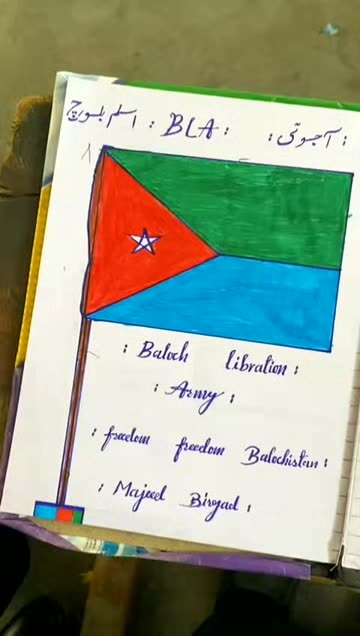 اسلم بلوچ : BLA : : آجوئی :
: Baloch Libration :
: Army :
: freedom freedom Balochistan :
: Majeed Birgad :